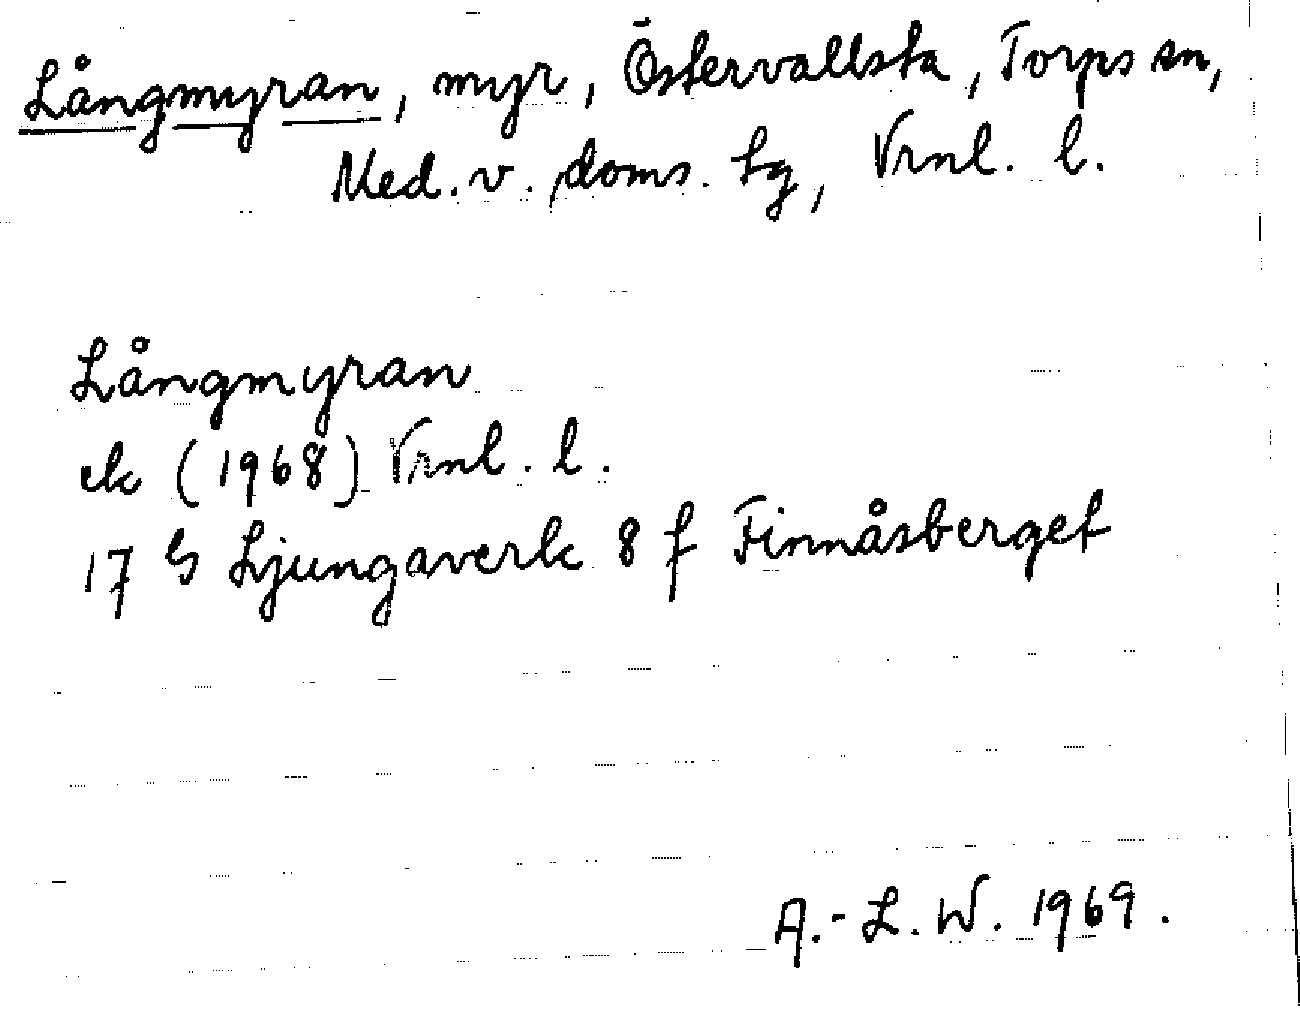 Långmyran, myr, Östervallsta, Torps sn,
Med. v. doms. tg, Vrnl. l.
Långmyran
ek (1968) Vrnl. l.
17 G Ljungaverk 8 f Finnåsberget
A.-L. W. 1969.